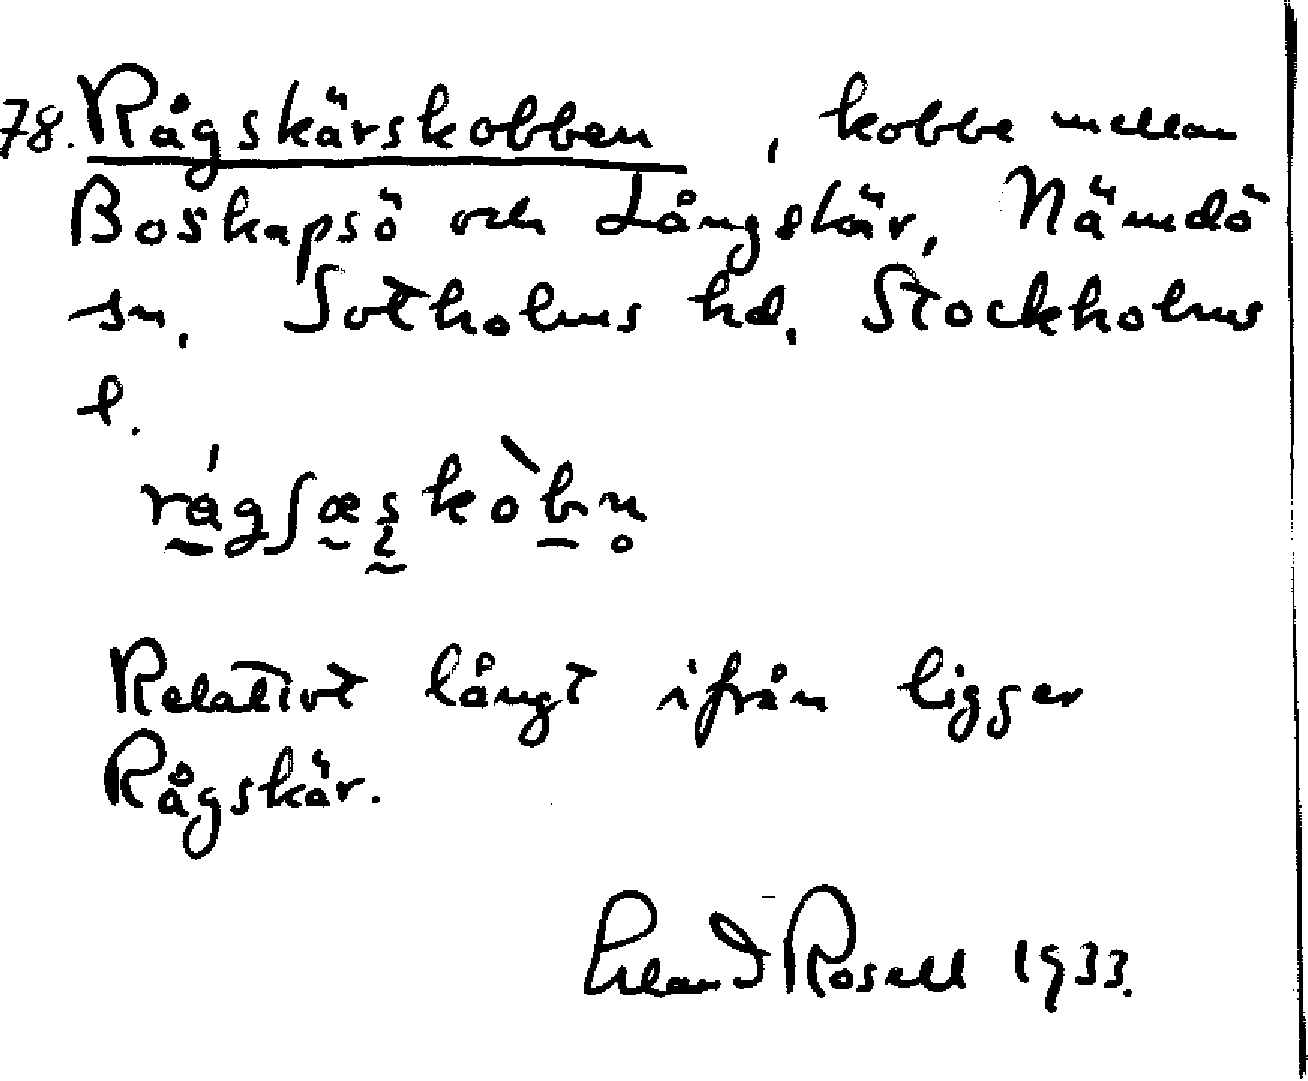 78. Rågskärskobben, kobbe mellan
Boskapsö och Långskär, Nämdö
sn, Sotholms hd, Stockholms
l.
rágʃæskòbn̥
Relativt långt ifrån ligger
Rågskär.
Erland Rosell 1933.